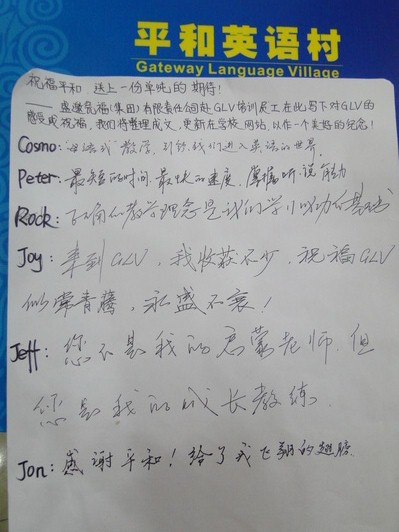 平和英语村
Gateway Language Village
祝福平和,送上一份单纯的期待!
——盛瀛冠福(集团)有限责任公司赴GLV培训员工在此写下对GLV的
感受或祝福,我们将整理成文,更新在学校网站,以作一个美好的纪念!
Cosmo: "游戏式"教学,引领我们进入英语的世界.
Peter: 最短的时间.最快的速度.掌握听.说能力
Rock: 正确的教学理念是我们学习成功的基础
Joy: 来到GLV,我收获不少,祝福GLV
似常青藤,永盛不衰!
Jeff: 您不是我的启蒙老师.但
您是我的成长教练.
Jon: 感谢平和!给了我飞翔的翅膀.